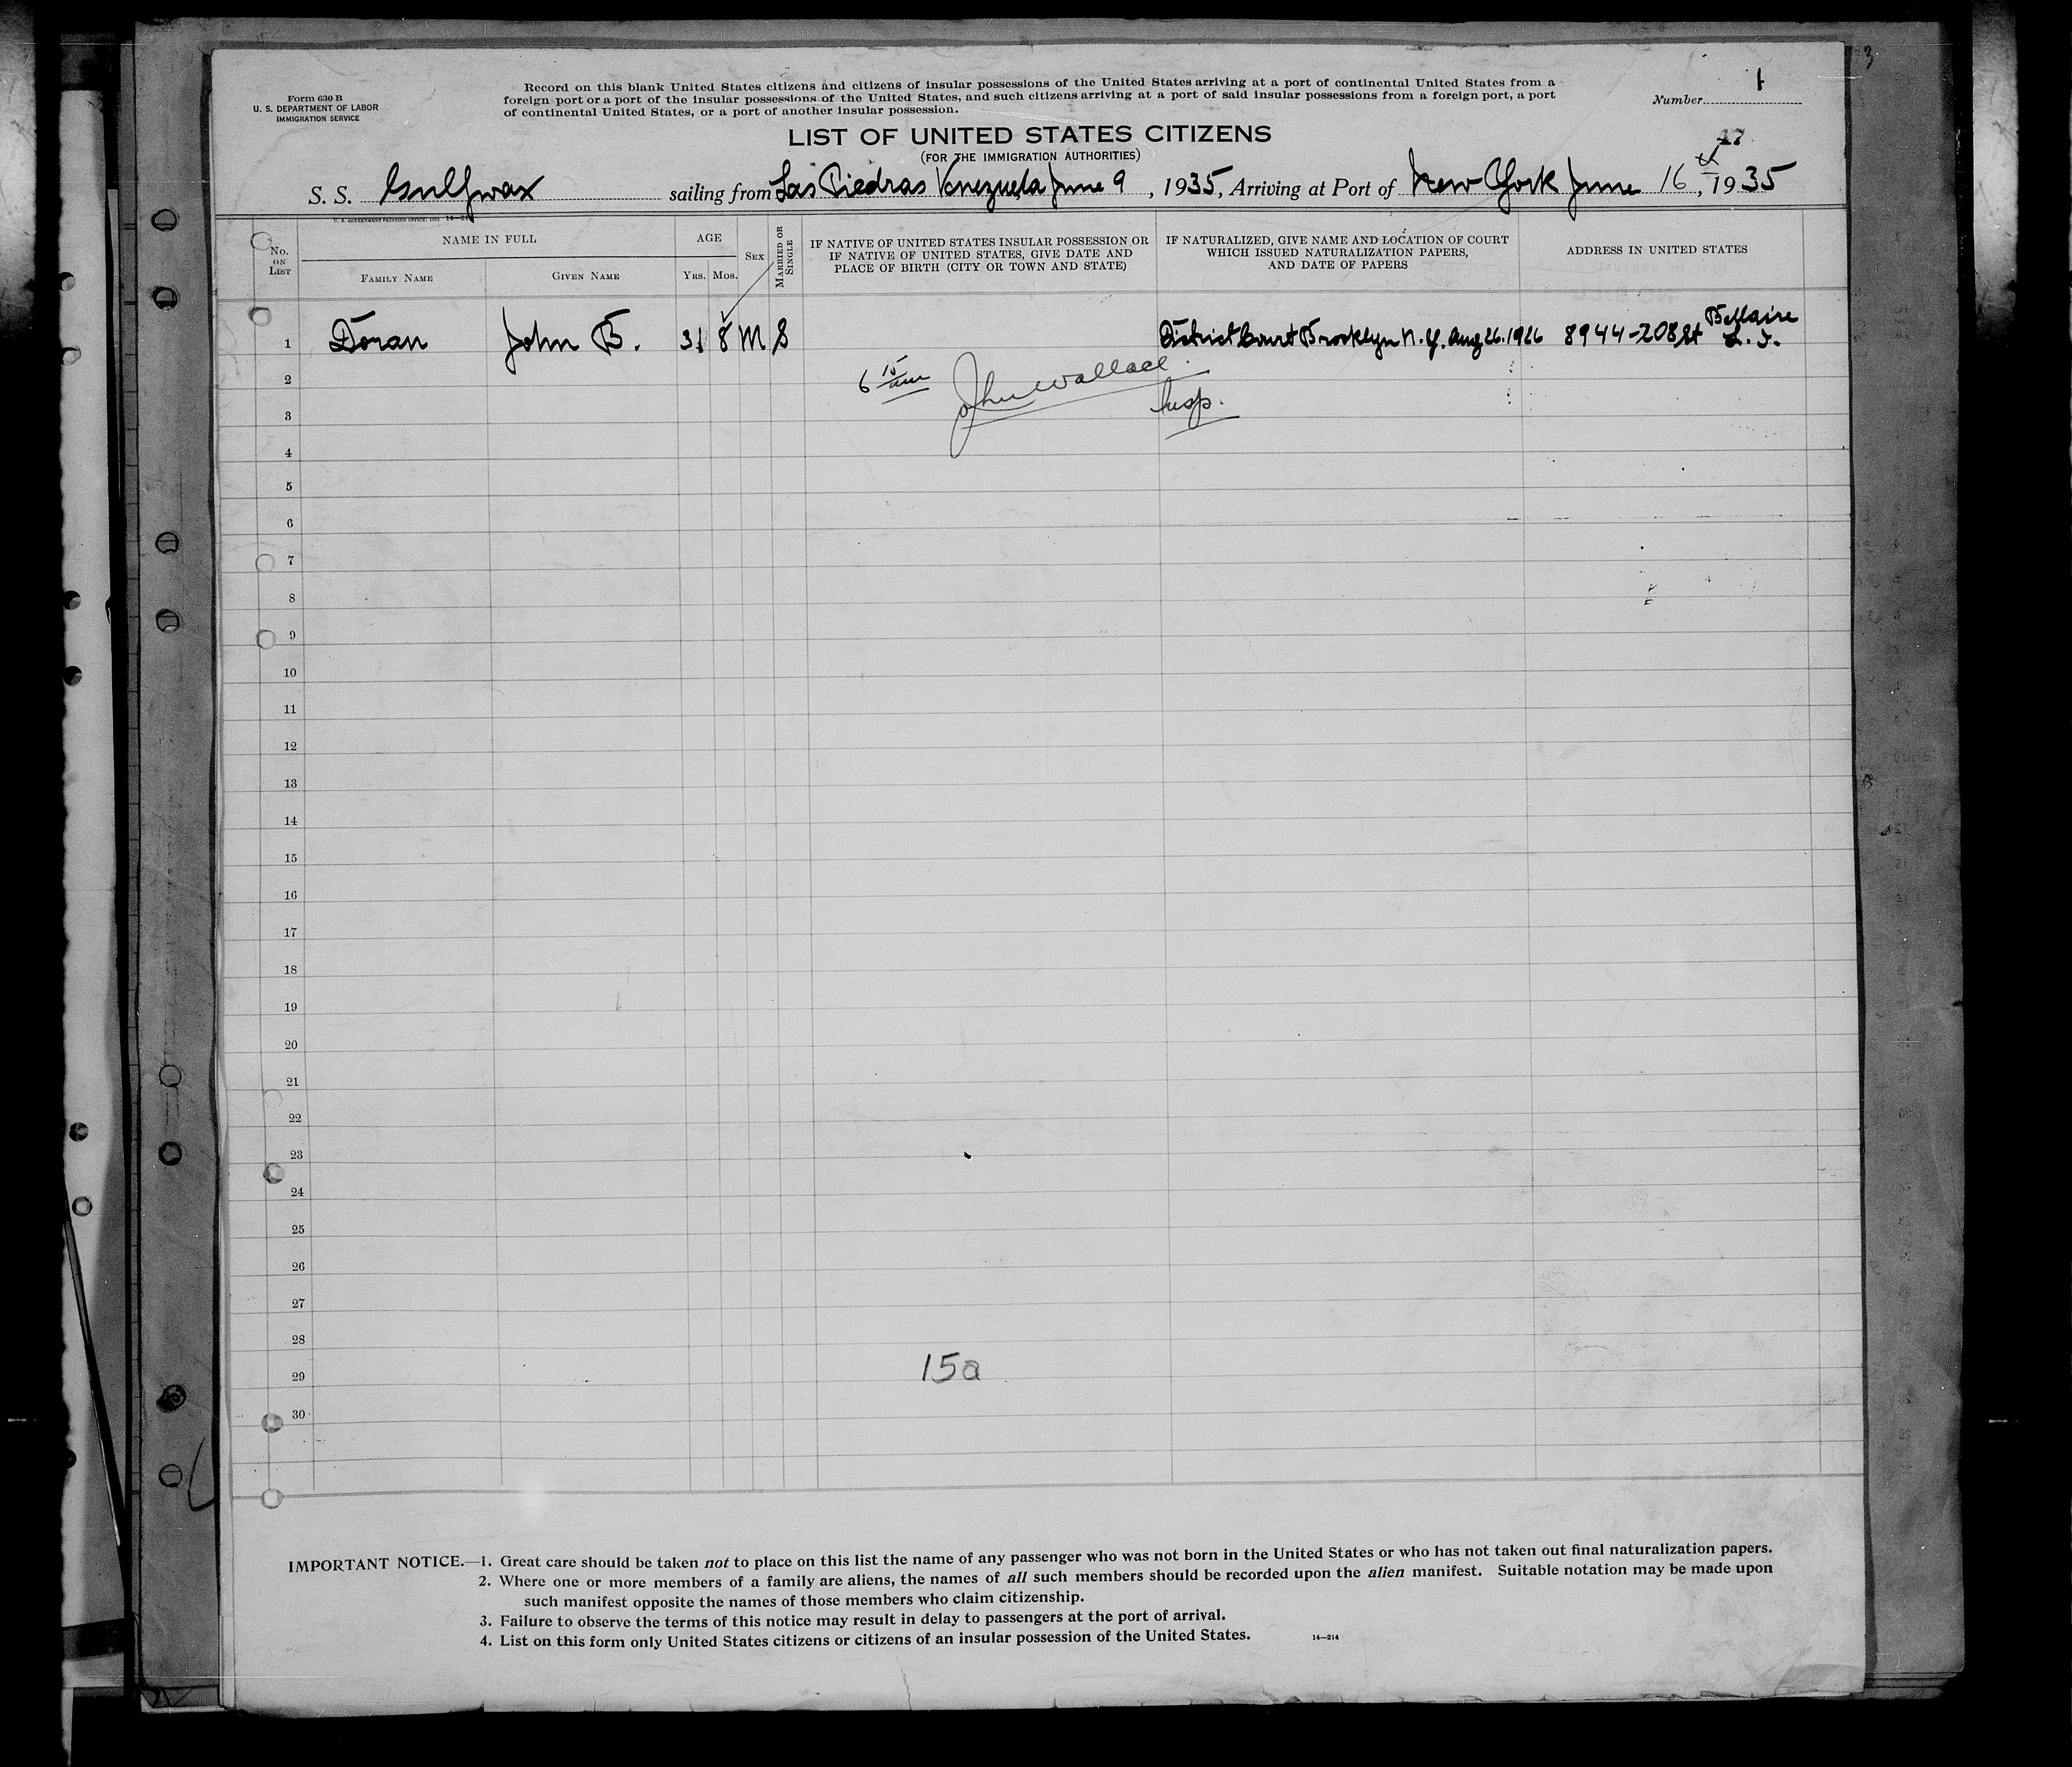 Form 630 B
U. S. DEPARTMENT OF LABOR
IMMIGRATION SERVICE
Record on this blank United States citizens and citizens of insular possessions of the United States arriving at a port of continental United States from a
foreign port or a port of the insular possessions of the United States, and such citizens arriving at a port of said insular possessions from a foreign port, a port
of continental United States, or a port of another insular possession.
Number 1
LIST OF UNITED STATES CITIZENS
(FOR THE IMMIGRATION AUTHORITIES)
S. S. Gulfwax sailing from Las Piedras Venezuela June 9, 1935, Arriving at Port of New York June 16, 1935
No. ON LIST
NAME IN FULL
FAMILY NAME
GIVEN NAME
AGE
YRS. MOS.
SEX
MARRIED OR SINGLE
IF NATIVE OF UNITED STATES INSULAR POSSESSION OR
IF NATIVE OF UNITED STATES, GIVE DATE AND
PLACE OF BIRTH (CITY OR TOWN AND STATE)
IF NATURALIZED, GIVE NAME AND LOCATION OF COURT
WHICH ISSUED NATURALIZATION PAPERS,
AND DATE OF PAPERS
ADDRESS IN UNITED STATES
1 Doran John B. 31 8 M S District Court Brooklyn N.Y. Aug 26. 1926 8944-208 St Bellaire L. I.
6 15 am John Wallace Insp.
2
3
4
5
6
7
8
9
10
11
12
13
14
15
16
17
18
19
20
21
22
23
24
25
26
27
28
15a
29
30
IMPORTANT NOTICE.—1. Great care should be taken not to place on this list the name of any passenger who was not born in the United States or who has not taken out final naturalization papers.
2. Where one or more members of a family are aliens, the names of all such members should be recorded upon the alien manifest. Suitable notation may be made upon
such manifest opposite the names of those members who claim citizenship.
3. Failure to observe the terms of this notice may result in delay to passengers at the port of arrival.
4. List on this form only United States citizens or citizens of an insular possession of the United States. 14—214